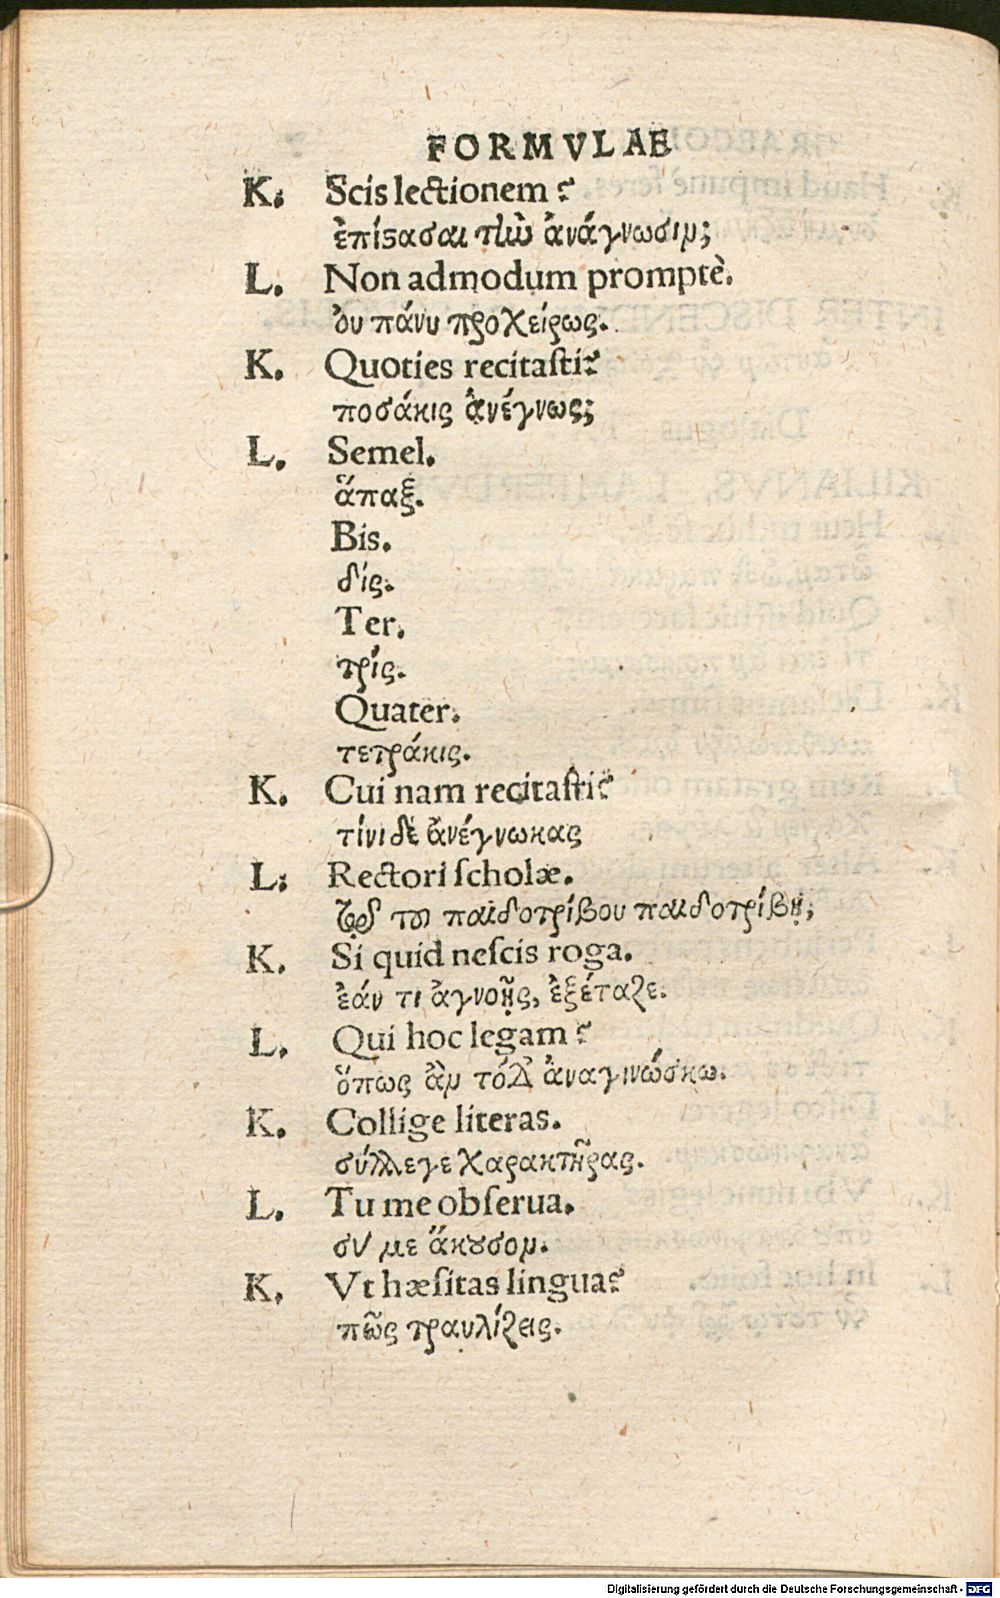 FORMVLAE
K. Scis lectionem?
ἐπίϛασαι τὴν ἀνάγνωσιν;
L. Non admodum promptè.
ὀυ πάνυ προχείρως.
K. Quoties recitaſti?
ποσάκις ἀνέγνως;
L. Semel.
ἅπαξ.
Bis.
δίς.
Ter.
τρίς.
Quater.
τετράκις.
K. Cui nam recitaſti?
τίνι δὲ ἀνέγνωκας
L. Rectori ſcholæ.
τοῦ παιδοτρίβου παιδοτρίβῃ;
K. Si quid neſcis roga.
ἐάν τι ἀγνοῇς, ἐξέταζε.
L. Qui hoc legam?
ὅπως ἂν τόδ' ἀναγινώσκω.
K. Collige literas.
σύλλεγε χαρακτῆρας.
L. Tu me obſerua.
σύ με ἄκουσον.
K. Vt hæſitas lingua?
πῶς τραυλίζεις.
Digitalisierung gefördert durch die Deutsche Forschungsgemeinschaft - DFG